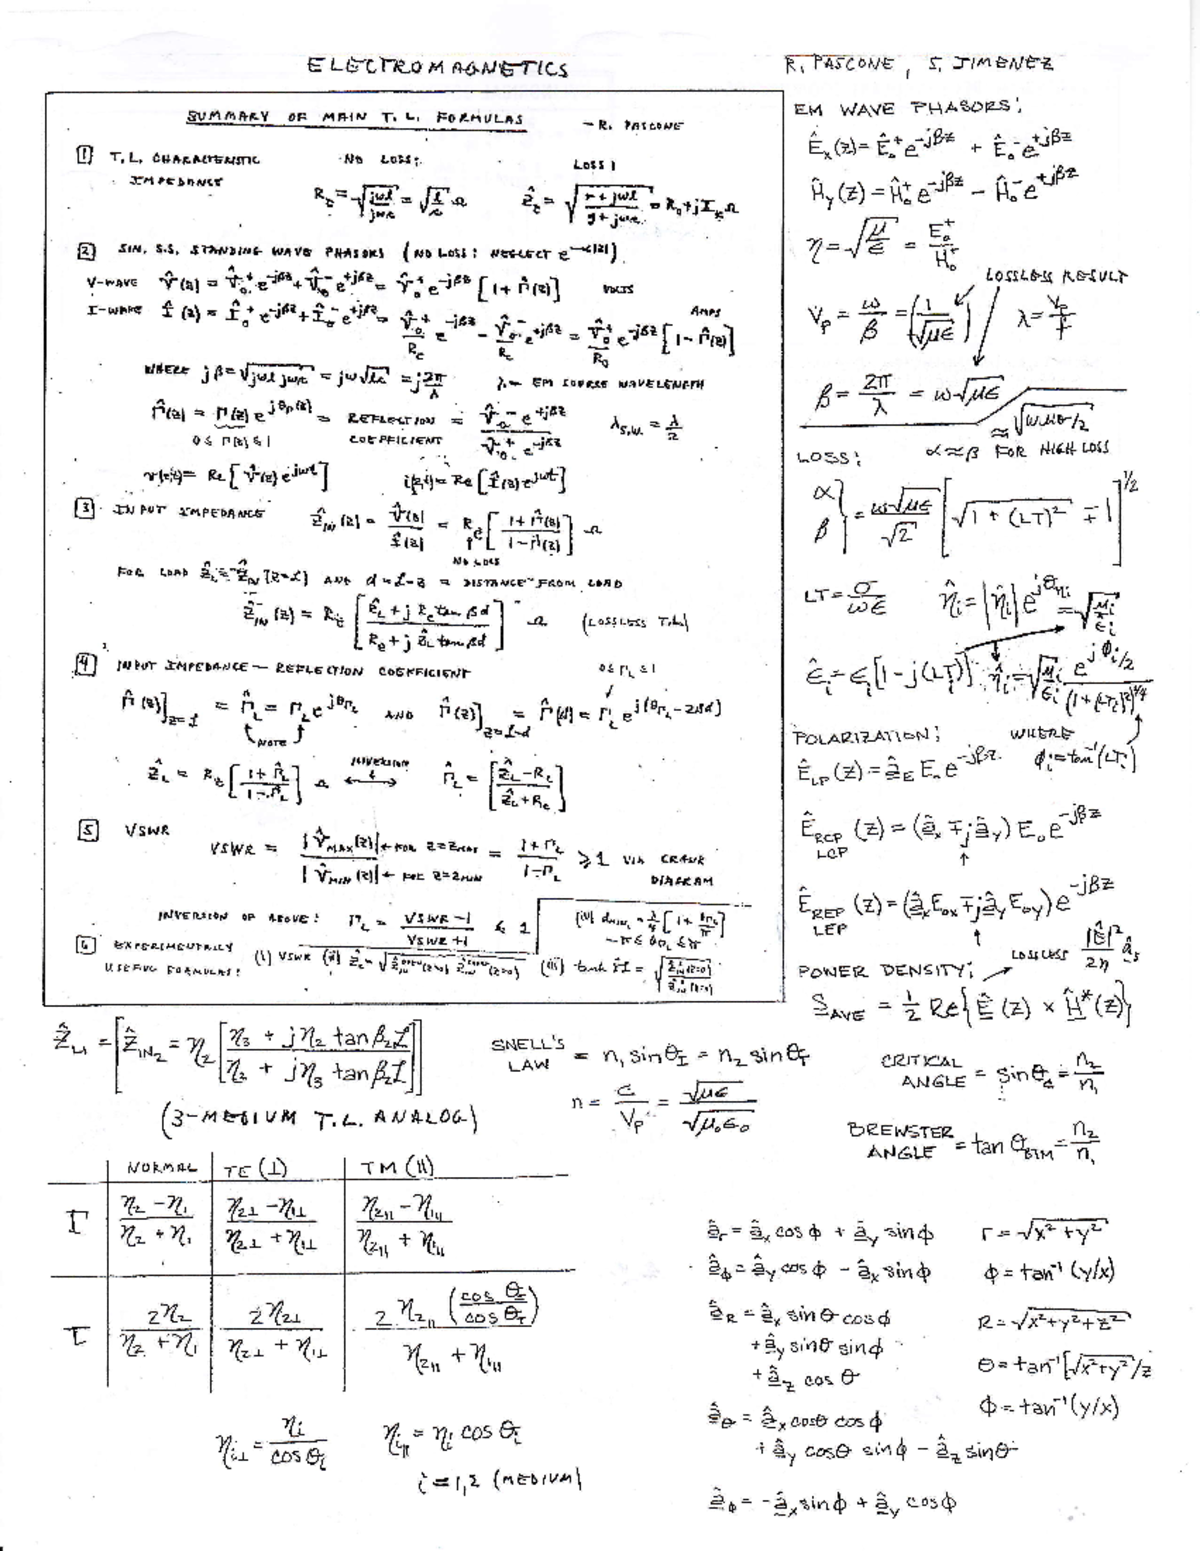 ELECTROMAGNETICS
R. PASCONE, S. JIMENEZ
SUMMARY OF MAIN T. L. FORMULAS
– R. PASCONE
1 T.L. CHARACTERISTIC IMPEDANCE
NO LOSS:
LOSS:
R_c = √(jωl/jωc) = √(l/c) Ω
Ẑ_c = √((r + jωl)/(g + jωc)) = R_c + jX_c Ω
2 SIN. S.S. STANDING WAVE PHASORS (NO LOSS: NEGLECT e^(-α|z|))
V-WAVE V̂(z) = V̂_o⁺ e^(-jβz) + V̂_o⁻ e^(+jβz) = V̂_o⁺ e^(-jβz) [1 + Γ̂(z)] VOLTS
I-WAVE Î(z) = Î_o⁺ e^(-jβz) + Î_o⁻ e^(+jβz) = V̂_o⁺/R_c e^(-jβz) – V̂_o⁻/R_c e^(+jβz) = V̂_o⁺/R_o e^(-jβz) [1 – Γ̂(z)] AMPS
WHERE jβ = √(jωl jωc) = jω√(lc) = j2π/λ λ – EM SOURCE WAVELENGTH
Γ̂(z) = Γ(z) e^(jθ_Γ(z)) = REFLECTION COEFFICIENT = V̂_o⁻ e^(+jβz) / V̂_o⁺ e^(-jβz) λ_S.W. = λ/2
0 ≤ Γ(z) ≤ 1
v(z,t) = Re[V̂(z) e^(jωt)] i(z,t) = Re[Î(z) e^(jωt)]
3 INPUT IMPEDANCE Ẑ_IN(z) = V̂(z)/Î(z) = R_c [(1 + Γ̂(z))/(1 – Γ̂(z))] Ω
NO LOSS
FOR LOAD Ẑ_L = Ẑ_IN(z=ℓ) AND d = ℓ – z = DISTANCE FROM LOAD
Ẑ_IN(z) = R_c [(Ẑ_L + j R_c tan βd)/(R_c + j Ẑ_L tan βd)] Ω (LOSSLESS T.L.)
4 INPUT IMPEDANCE – REFLECTION COEFFICIENT 0 ≤ Γ_L ≤ 1
Γ̂(z)]_(z=ℓ) = Γ̂_L = Γ_L e^(jθ_ΓL) AND Γ̂(z)]_(z=ℓ-d) = Γ̂(d) = Γ_L e^(j(θ_ΓL – 2βd))
NOTE
Ẑ_L = R_c [(1 + Γ̂_L)/(1 – Γ̂_L)] Ω ⟷ INVERSION Γ̂_L = [(Ẑ_L – R_c)/(Ẑ_L + R_c)]
5 VSWR
VSWR = |V̂_MAX(z)| ← FOR z=z_MAX / |V̂_MIN(z)| ← FOR z=z_MIN = (1 + Γ_L)/(1 – Γ_L) ≥ 1 VIA CRANK DIAGRAM
INVERSION OF ABOVE: Γ_L = (VSWR – 1)/(VSWR + 1) ≤ 1
6 EXPERIMENTALLY USEFUL FORMULAS:
(i) VSWR (ii) Ẑ_c = √(Ẑ_IN(z=0) Ẑ_IN(z=0)) (iii) tanh γ̂ℓ = √(Ẑ_IN(z=0)/Ẑ_IN(z=0))
(iv) d_MIN = λ/4 [1 + θ_ΓL/π]
–π ≤ θ_ΓL ≤ π
EM WAVE PHASORS:
Ê_x(z) = Ê_o⁺ e^(-jβz) + Ê_o⁻ e^(+jβz)
Ĥ_y(z) = Ĥ_o⁺ e^(-jβz) – Ĥ_o⁻ e^(+jβz)
η = √(μ/ε) = E_o⁺/H_o⁺
LOSSLESS RESULT
V_p = ω/β = (1/√(με)) λ = V_p/f
β = 2π/λ = ω√(με)
≈ √(ωμσ/2)
LOSS: α ≈ β FOR HIGH LOSS
α, β } = ω√(με)/√2 [√(1 + (LT)²) ∓ 1]^(1/2)
LT = σ/ωε η̂_i = |η̂_i| e^(jθ_ηi) = √(μ_i/ε̂_i)
ε̂_i = ε_i [1 – j(LT_i)] η̂_i = √(μ_i/ε_i) e^(jφ_i/2)/(1 + (LT_i)²)^(1/4)
POLARIZATION: WHERE φ_i = tan⁻¹(LT_i)
Ê_LP(z) = â_E E_o e^(-jβz)
Ê_RCP LCP (z) = (â_x ∓ jâ_y) E_o e^(-jβz)
Ê_REP LEP (z) = (â_x E_ox ∓ jâ_y E_oy) e^(-jβz)
POWER DENSITY: LOSSLESS |Ê|²/2η â_s
S_AVE = 1/2 Re{Ê(z) × Ĥ*(z)}
Ẑ_L1 = [Ẑ_IN2 = η_2 [(η_3 + jη_2 tan β_2ℓ)/(η_2 + jη_3 tan β_2ℓ)]]
(3-MEDIUM T.L. ANALOG)
SNELL'S LAW = n_1 sin θ_I = n_2 sin θ_T
n = c/V_p = √(με)/√(μ_oε_o)
CRITICAL ANGLE = sin θ_c = n_2/n_1
BREWSTER ANGLE = tan θ_BTM = n_2/n_1
NORMAL TE (⊥) TM (∥)
Γ (η_2 – η_1)/(η_2 + η_1) (η_2⊥ – η_1⊥)/(η_2⊥ + η_1⊥) (η_2∥ – η_1∥)/(η_2∥ + η_1∥)
τ 2η_2/(η_2 + η_1) 2η_2⊥/(η_2⊥ + η_1⊥) 2η_2∥ (cos θ_I/cos θ_T)/(η_2∥ + η_1∥)
η_i⊥ = η_i/cos θ_i η_i∥ = η_i cos θ_i
i = 1,2 (MEDIUM)
â_r = â_x cos φ + â_y sin φ r = √(x² + y²)
â_φ = â_y cos φ – â_x sin φ φ = tan⁻¹(y/x)
â_R = â_x sin θ cos φ R = √(x² + y² + z²)
+ â_y sin θ sin φ
+ â_z cos θ θ = tan⁻¹[√(x² + y²)/z
â_θ = â_x cos θ cos φ φ = tan⁻¹(y/x)
+ â_y cos θ sin φ – â_z sin θ
â_φ = –â_x sin φ + â_y cos φ